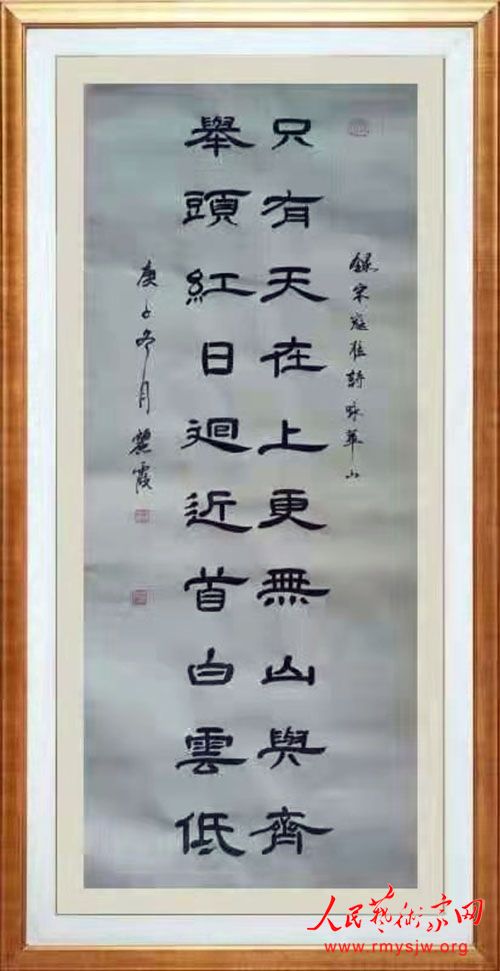 録宋寇准詩咏華山
只有天在上更無山與齊
舉頭紅日迴近首白雲低
庚子冬月 麗霞
人民藝術家网
www.rmysjw.org